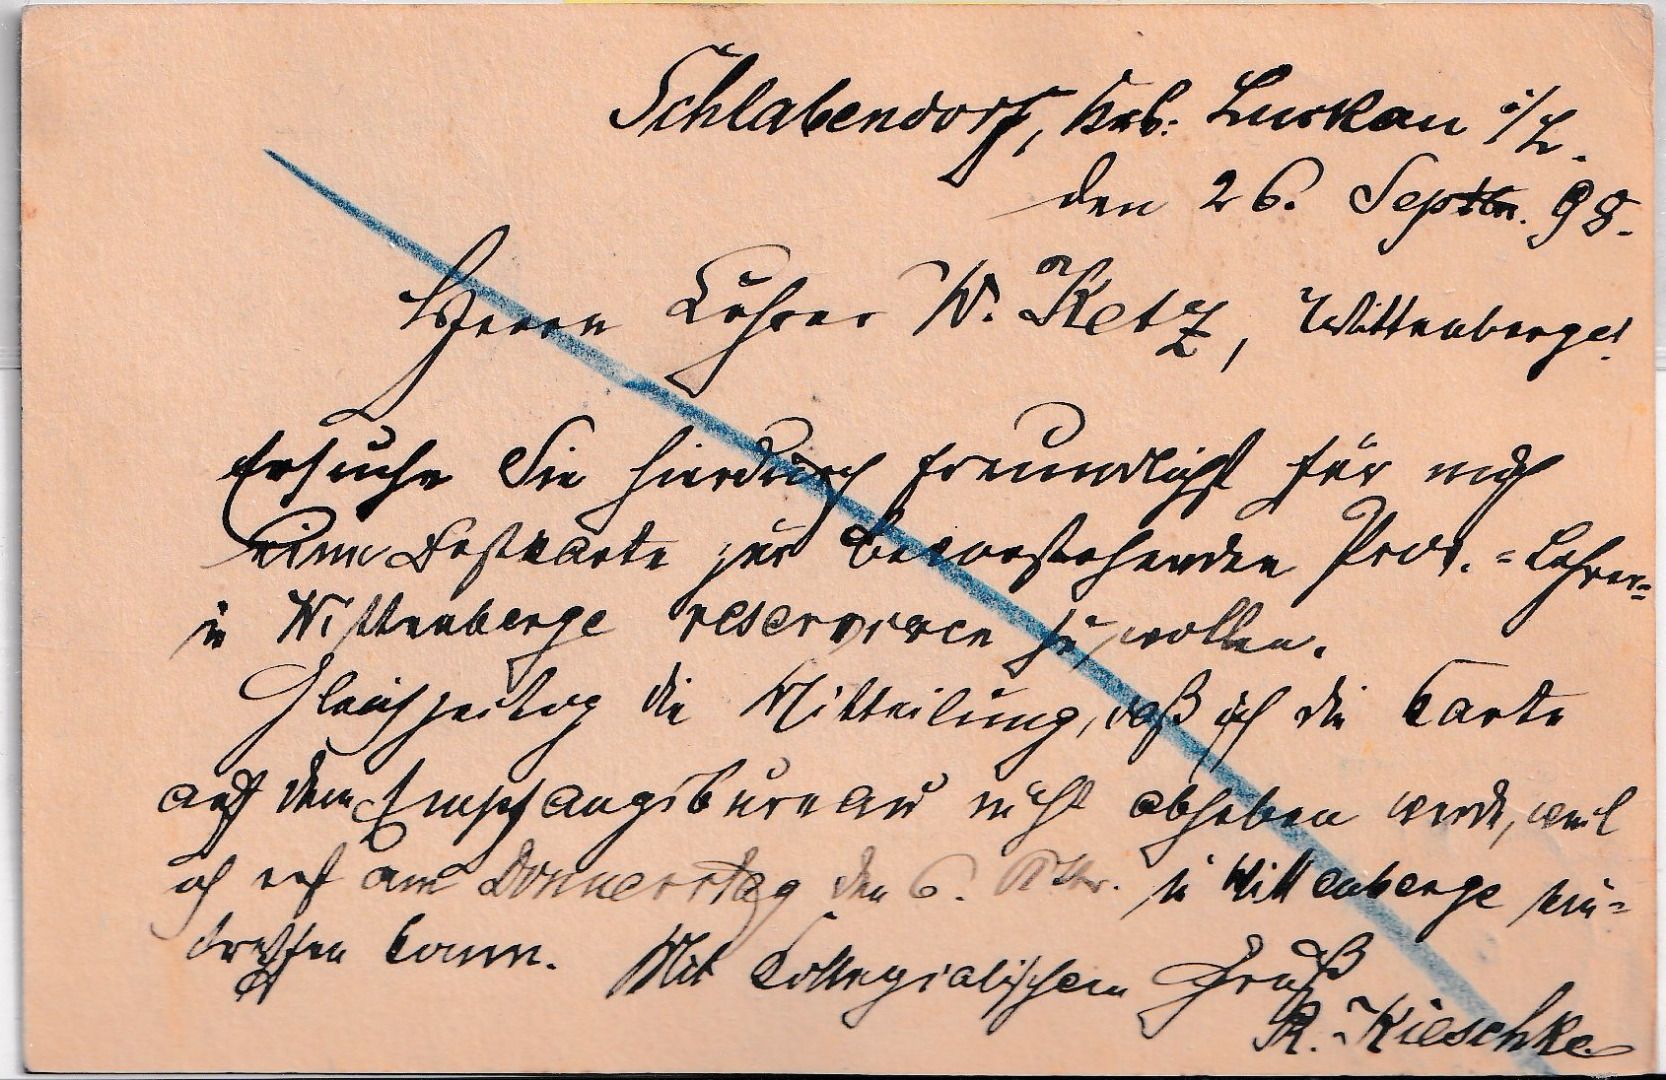 Schlabendorf, Krs. Luckau i/L.
den 26. Septbr. 98.
Herrn Lehrer W. Ketz, Wittenberge!
Ersuche Sie hierdurch freundlichst für mich
eine Festkarte zur bevorstehenden Prov.-Lehrer-
in Wittenberge reservieren zu wollen.
Gleichzeitig die Mitteilung, daß ich die Karte
auf dem Empfangsbureau nicht abheben werde, weil
ich erst am Donnerstag den 6. Oktbr. in Wittenberge ein-
treffen kann. Mit kollegialischem Gruß
R. Kieschke